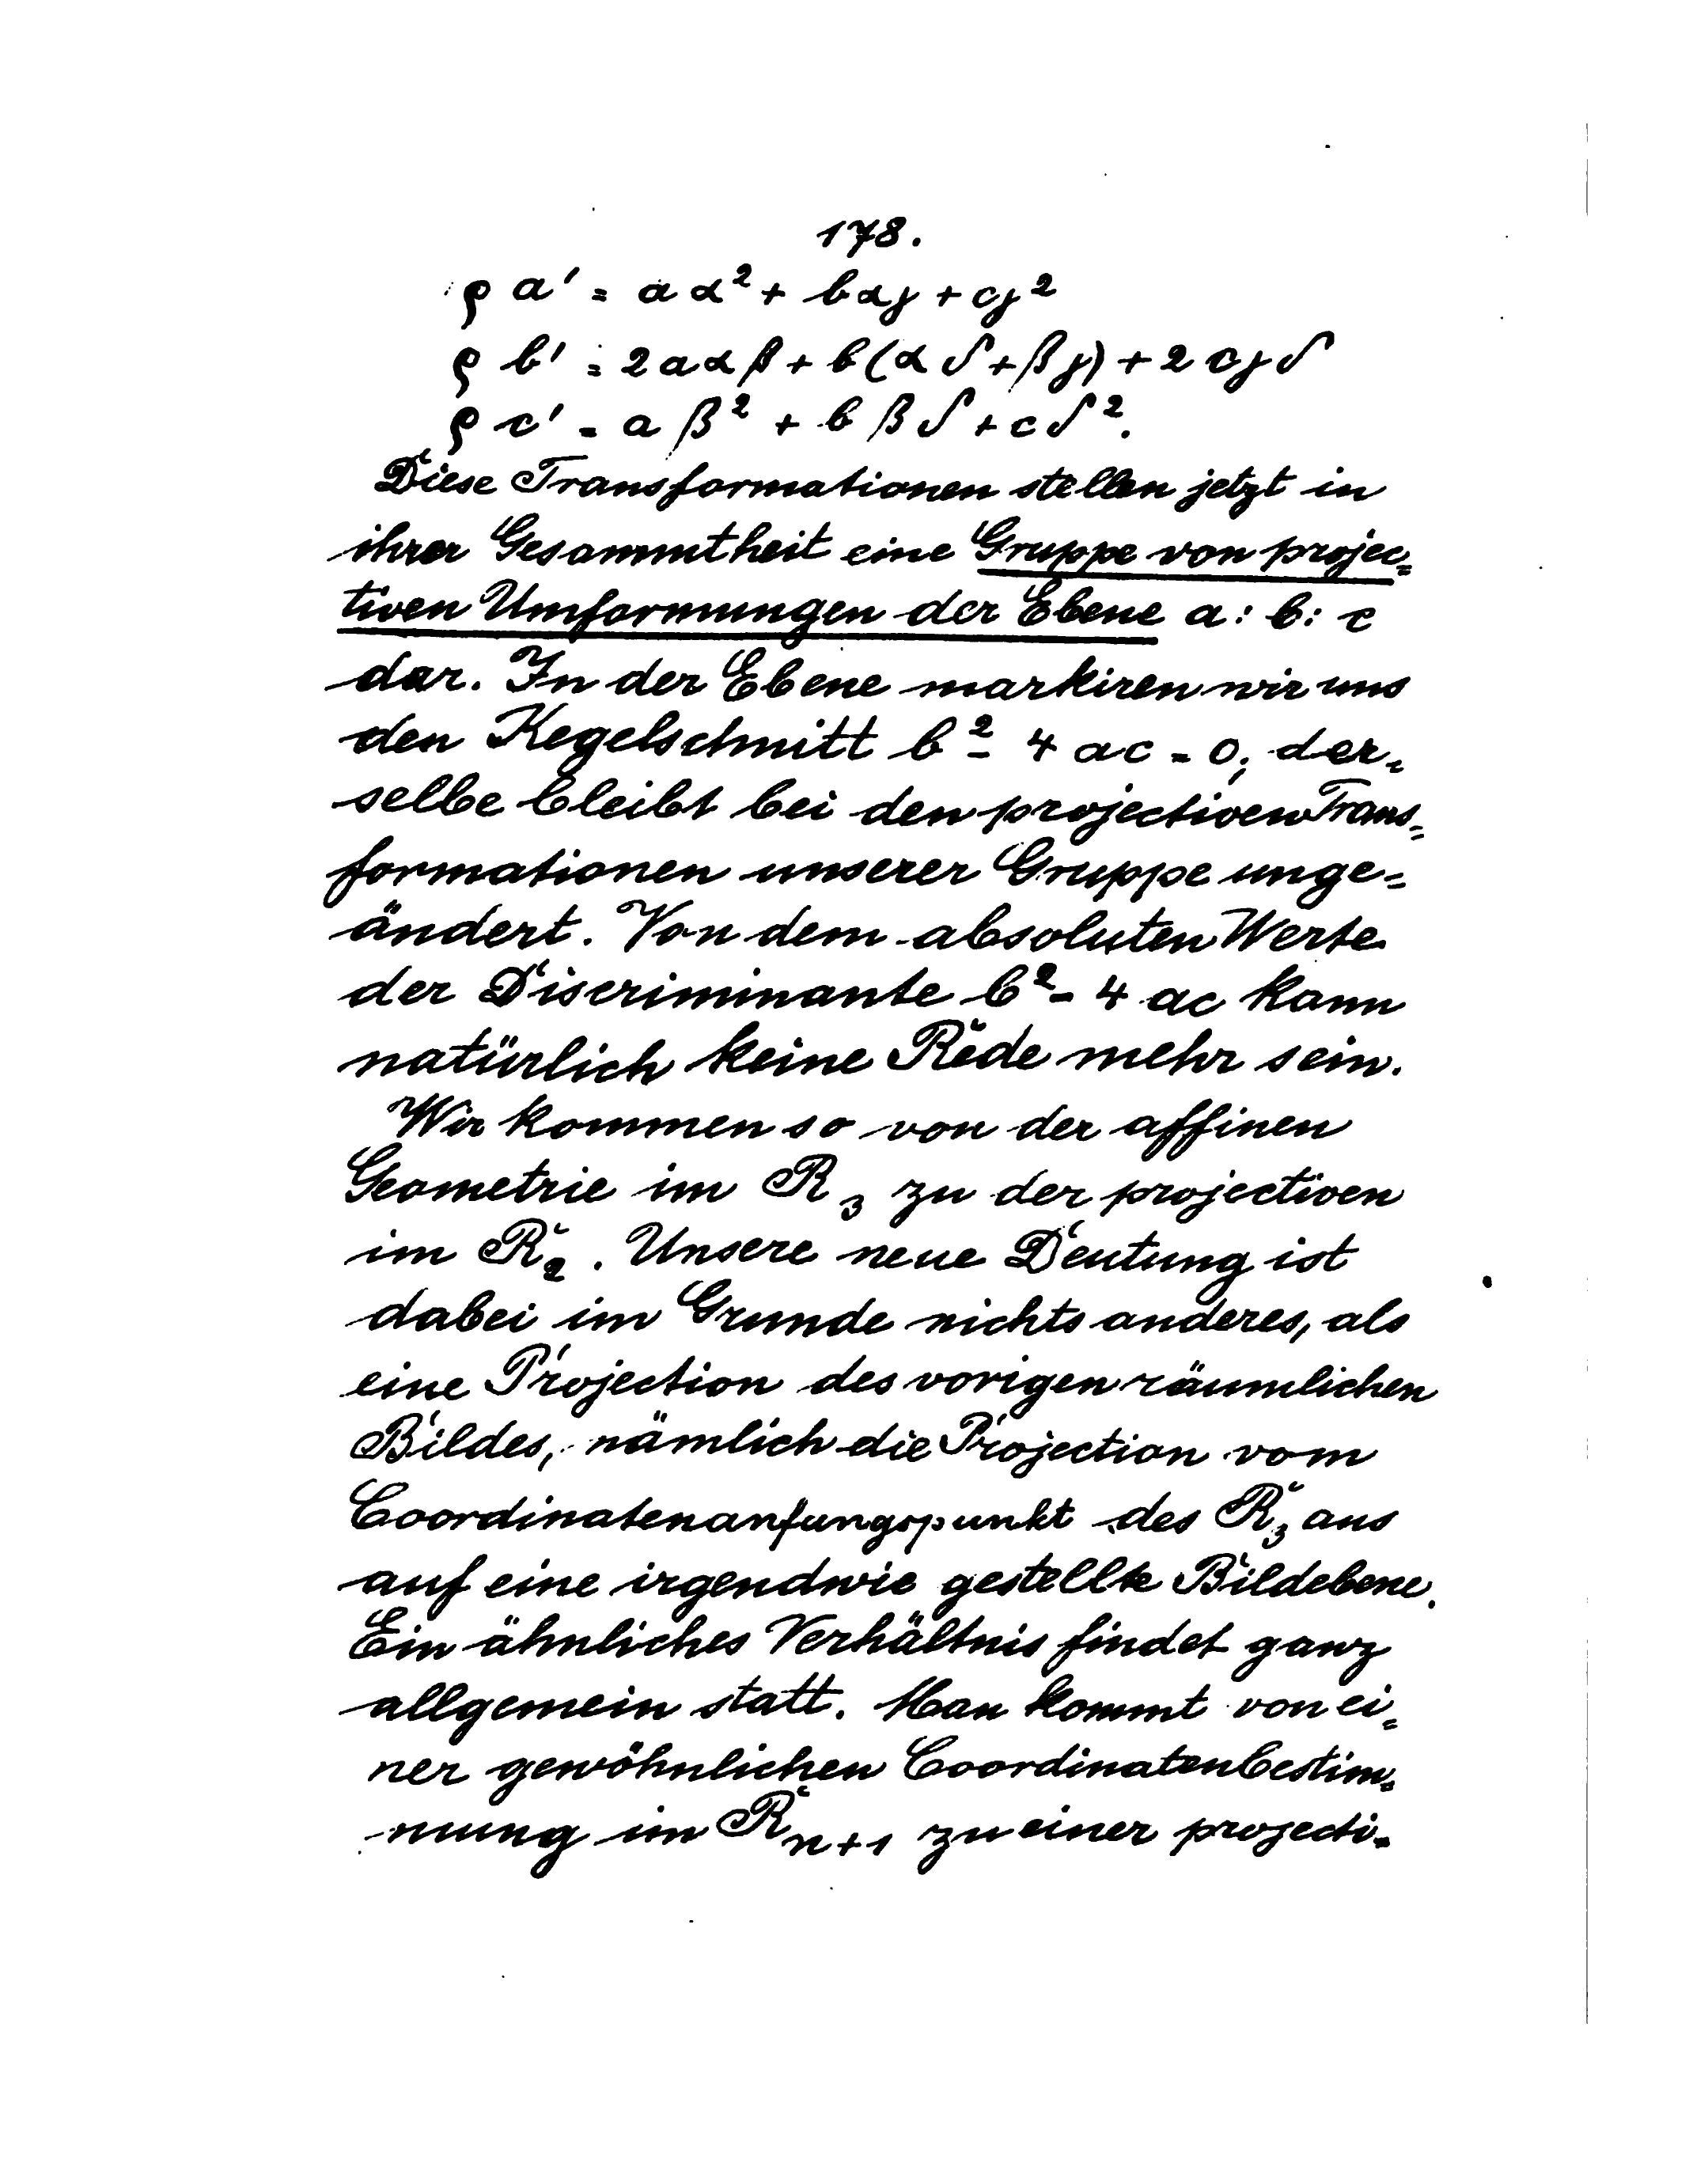 178.
ϱ a' = aα² + bαγ + cγ²
ϱ b' = 2aαβ + b(αδ + βγ) + 2cγδ
ϱ c' = aβ² + bβδ + cδ².
Diese Transformationen stellen jetzt in
ihrer Gesammtheit eine Gruppe von projec=
tiven Umformungen der Ebene a : b : c
dar. In der Ebene markiren wir uns
den Kegelschnitt b² - 4 ac = 0; der=
selbe bleibt bei den projectiven Trans=
formationen unserer Gruppe unge=
ändert. Von dem absoluten Werte
der Discriminante b² - 4 ac kann
natürlich keine Rede mehr sein.
Wir kommen so von der affinen
Geometrie im R₃ zu der projectiven
im R₂. Unsere neue Deutung ist
dabei im Grunde nichts anderes, als
eine Projection des vorigen räumlichen
Bildes, nämlich die Projection vom
Coordinatenanfangspunkt des R₃ aus
auf eine irgendwie gestellte Bildebene.
Ein ähnliches Verhältnis findet ganz
allgemein statt. Man kommt von ei=
ner gewöhnlichen Coordinatenbestim=
mung im Rₙ₊₁ zu einer projecti=